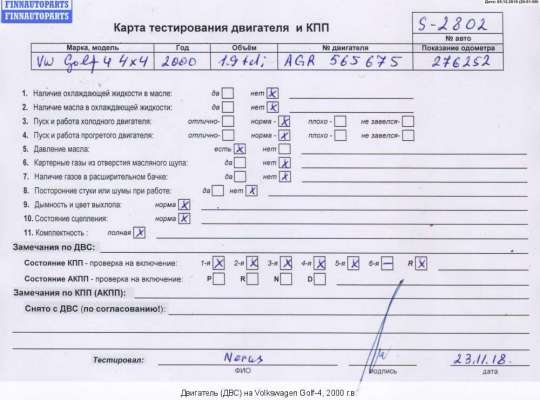 FINNAUTOPARTS FINNAUTOPARTS
FINNAUTOPARTS
Карта тестирования двигателя и КПП
S-2802
№ авто
Марка, модель Год Объём № двигателя Показание одометра
VW Golf 4 4x4 2000 1.9 tdi AGR 565675 276252
1. Наличие охлаждающей жидкости в масле: да нет x
2. Наличие масла в охлаждающей жидкости: да нет x
3. Пуск и работа холодного двигателя: отлично- норма - x плохо - не завелся-
4. Пуск и работа прогретого двигателя: отлично- норма - x плохо - не завелся-
5. Давление масла: есть x нет
6. Картерные газы из отверстия масляного щупа: да нет x
7. Наличие газов в расширительном бачке: да нет x
8. Посторонние стуки или шумы при работе: да нет x
9. Дымность и цвет выхлопа: норма x
10. Состояние сцепления: норма x
11. Комплектность : полная x
Замечания по ДВС:
Состояние КПП - проверка на включение: 1-я x 2-я x 3-я x 4-я x 5-я x 6-я – R x
Состояние АКПП - проверка на включение: P R N D
Замечания по КПП (АКПП):
Снято с ДВС (по согласованию!):
Тестировал: 23.11.18.
ФИО подпись дата
Двигатель (ДВС) на Volkswagen Golf-4, 2000 г.в.